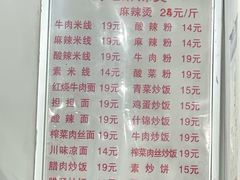 麻辣烫 28元/斤
牛肉米线 19元 酸辣粉 14元
麻辣米线 19元 麻辣粉 19元
酸辣米线 19元 牛肉粉 19元
素米线 14元 酸菜粉 19元
红烧牛肉面 19元 青菜炒饭 15元
担担面 19元 鸡蛋炒饭 15元
酸辣面 19元 什锦炒饭 19元
榨菜肉丝面 19元 牛肉炒饭 19元
川味凉面 14元 榨菜肉丝炒饭 19元
腊肉炒饭 19元 素炒饼 15元